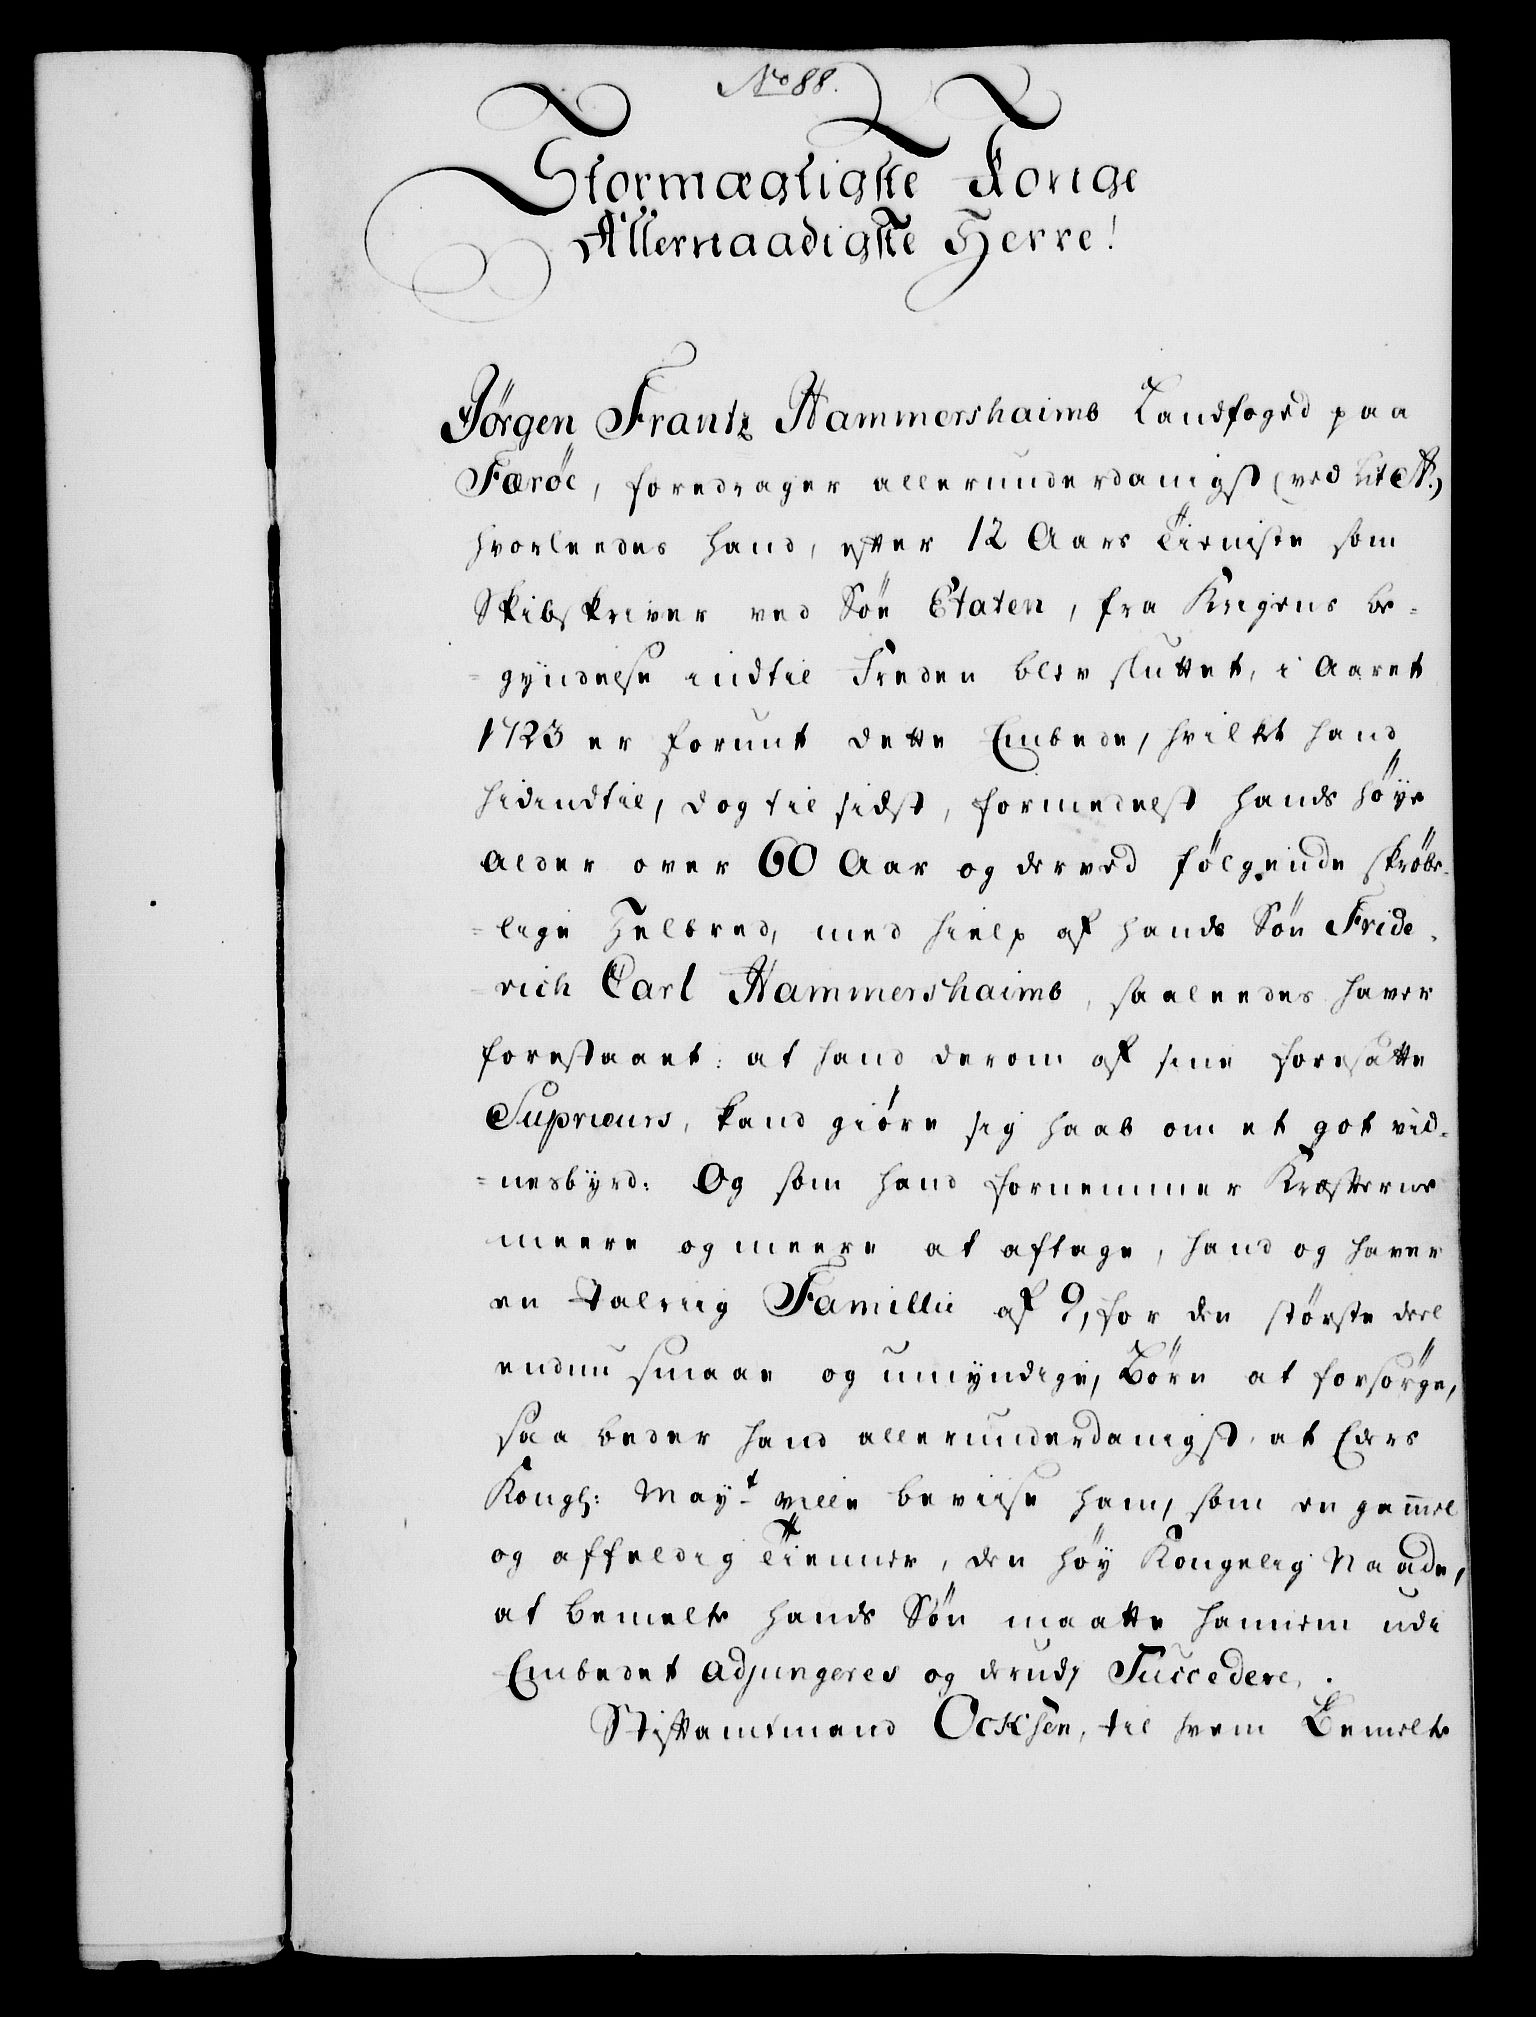 No 88.
Stormægtigste Konge
Allernaadigste Herre!
Jørgen Frantz Hammershaimb Landfoged paa
Færöe, foredrager allerunderdanigst (ved Lit A.)
hvorleedes hand, efter 12 Aars Tieniste som
Skibskriver ved Söe Etaten, fra Krigens be=
=gyndelse indtil Freden blev sluttet, i Aaret
1723 er forunt dette Embede, hvilket hand
hidindtil, dog til sidst, formedelst hands höye
alder over 60 Aar og derved fölgende skröbe=
=lige Helbred, med hielp af hands Sön Fride=
=rich Carl Hammershaimb, saaleedes haver
forestaaet: at hand derom af sine foresatte
Suprieurs, kand giöre sig haab om et got vid=
=nesbyrd: Og som hand fornemmer Kræfterne
meere og meere at aftage, hand og haver
en Talriig Famillie af 9, for den störste deel
endnu smaae og umyndige, Börn at forsörge,
saa beder hand allerunderdanigst, at Eders
Kongl: May.t ville beviise ham, som en gam̅el
og affeldig Tienner, den höy Kongelig Naade,
at bemelte hands Sön maatte hannem udi
Embedet adjungeres og derudj Succedere.
Stiftamtmand Ocksen, til hvem Bemelte